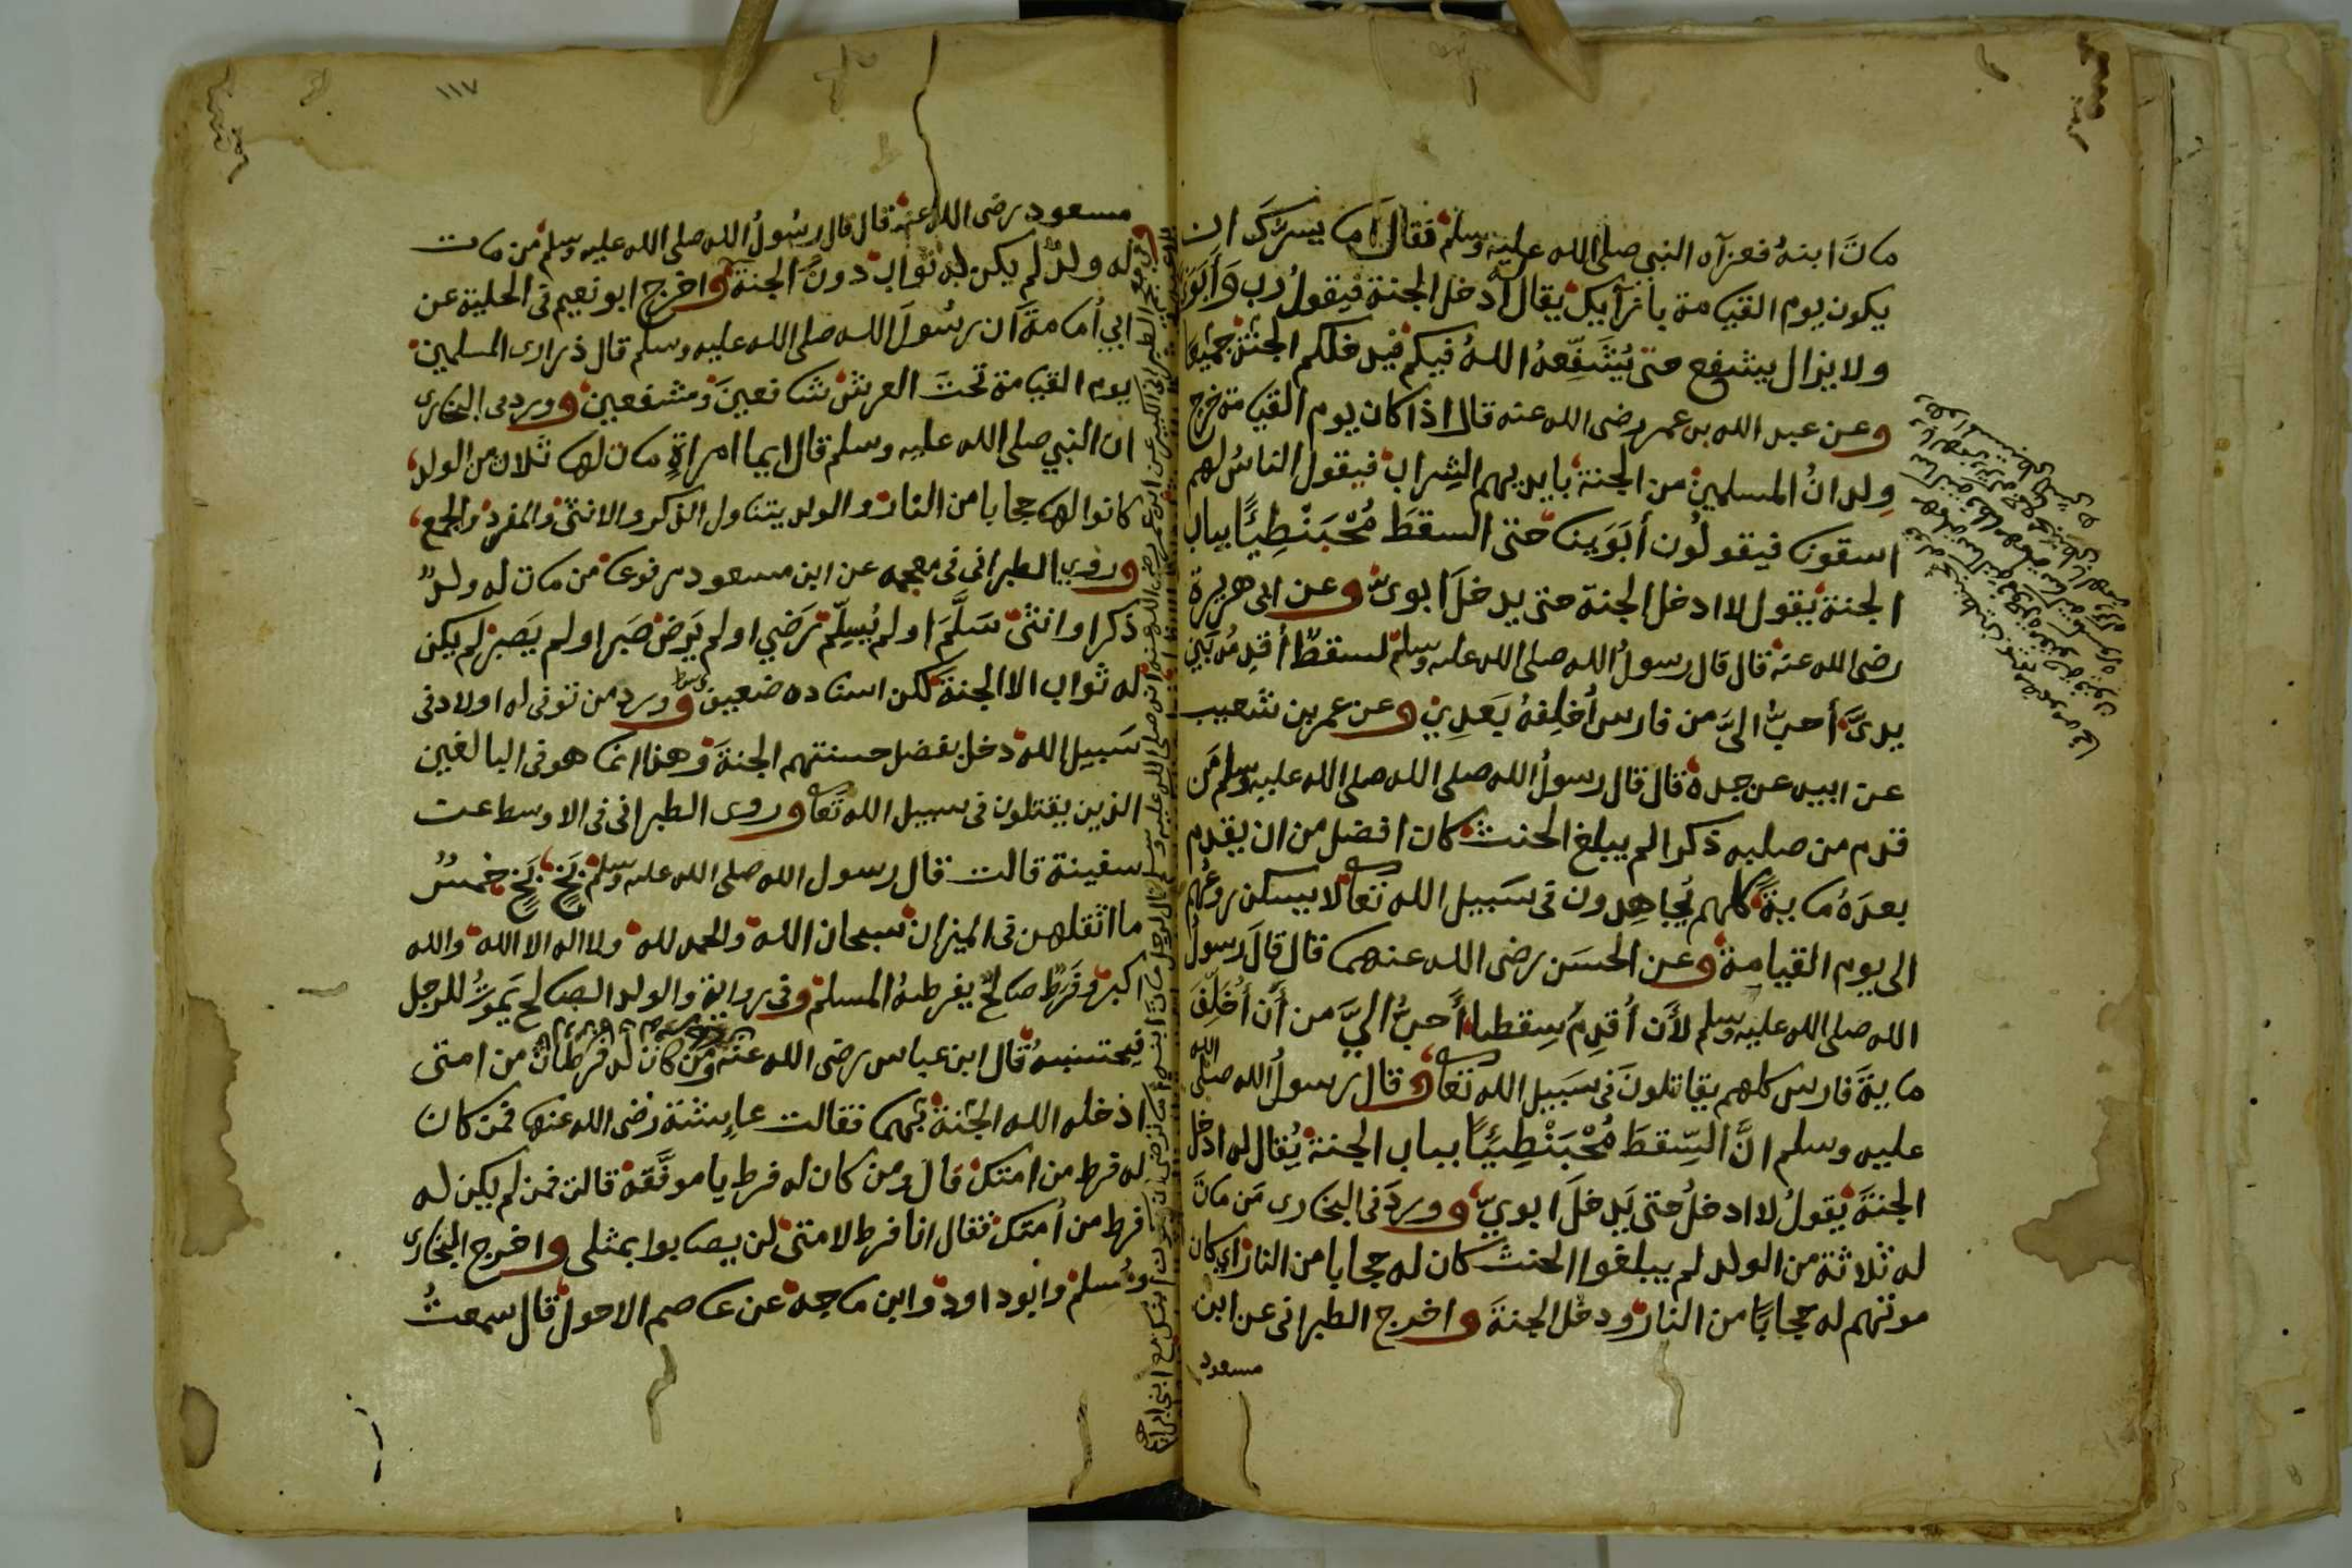 مات ابنهُ فعزآه النبى صلى الله عليه وسلم فقال اما يسرّكَ ان
يكون يوم القيامة بازآيك يقال له ادخل الجنة فيقولُ رب وَأبَوَيَّ
ولا يزال يشفع حتى يُشَفِّعهُ اللهُ فيكم فيدخلكم الجنة جميعًا
وعن عبد الله بن عمر رضى الله عنه قال اذا كان يوم القيامة خرج
وِلدانُ المسلمين من الجنة بايديهم الشراب فيقول الناسُ لهم
اسقونا فيقولُون أبَوَينا حتى السقطَ مُحْبَنْطِيًا بباب
الجنة يقول لا ادخل الجنة حتى يدخلَ ابوىّ وعن ابى هريرة
رضى الله عنه قال قال رسولُ الله صلى الله عليه وسلم لسقطٌ أقدِمُه بَين
يدىَّ أحبُّ الىَّ من فارس أُخلِفهُ بَعدِي وعن عمر بن شعيب
عن ابيه عن جده قال قال رسولُ الله صلى الله صلى الله عليه وسلم مَن
قدم من صلبه ذكرا لم يبلغ الحنث كان افضل من ان يقدم
بعدَهُ ماية كلهم يُجاهِدون فى سَبيل الله تعالى لا يسكن روعُهم
الى يوم القيامة وعن الحسَن رضى الله عنهما قال قالَ رسولُ
الله صلى الله عليه وسلم لأَن أُقدِمُ سِقطا أَحبُّ الىَّ من أَن أُخَلِّفَ
مايةَ فارس كلهم يقاتلونَ فى سَبيل الله تعالى وقال رسولُ الله صلى الله
عليه وسلم انَّ السِّقطَ مُحْبَنْطِيًا بباب الجنة يُقال له ادخل
الجنةَ يقولُ لا ادخلُ حتى يَدخلَ ابوىّ ووردَ فى البخارى مَن ماتَ
له ثلاثة من الولد لم يبلغوا الحنث كان له حجابا من النار اى كان
موتهم له حجابًا من النار ودخل الجنةَ واخرج الطبرانى عن ابن
مسعود
١١٧
مسعود رضى الله عنه قال قال رسُولُ الله صلى الله عليه وسلم من مات
له ولدٌ لم يكن له ثواب دونَ الجنة واخرج ابو نعيم فى الحلية عن
ابي أُمامةَ ان رسُولَ الله صلى الله عليه وسلم قال ذرارى المسلمين
يوم القيامة تحتَ العرش شافعينَ ومشفعين وورد فى البخارى
ان النبي صلى الله عليه وسلم قال ايما امراةٍ مات لها ثلاث من الولد
كانوا لها حجابا من النار والولد يتناول الذكر والانثى والمفرد والجمع
وروي الطبرانى فى معجمه عن ابن مسعود مرفوعا من مات له ولدٌ
ذكرا او انثى سَلَّمَ او لم يُسلّم رَضي او لم يَرضَ صَبرا او لم يَصبر لم يكن
له ثواب الا الجنة لكن اسناده ضعيف وورد من توفى له اولاد فى
سَبيل الله دخل بفضل حسنتهم الجنةَ وهذا انما هو فى البالغين
الذين يقتلون فى سبيل الله تعالى وروى الطبرانى فى الاوسط عن
سفينة قالت قال رسول الله صلى الله عليه وسلم بَخٍ بَخٍ خمسٌ
ما اثقلهن فى الميزان سبحان الله والحمد لله ولا اله الا الله والله
اكبر وفَرَطٌ صالحٌ يفرطهُ المسلم وفى رواية والولد الصالح يَموتُ للرجل
فيحتسبهُ قال ابن عباس رضى الله عنه ومن كان له فرطان من امتى
ادخله الله الجنة بهما فقالت عايشة رضى الله عنها فمن كان
له فرط من امتك قال ومن كان له فرط يا موفَّقة قالت فمن لم يكن له
فرط من أُمتك فقال انا فرط لامتى لن يصابوا بمثلى واخرج البخارى
ومُسلم وابو داود وابن ماجه عن عاصم الاحول قال سمعتُ